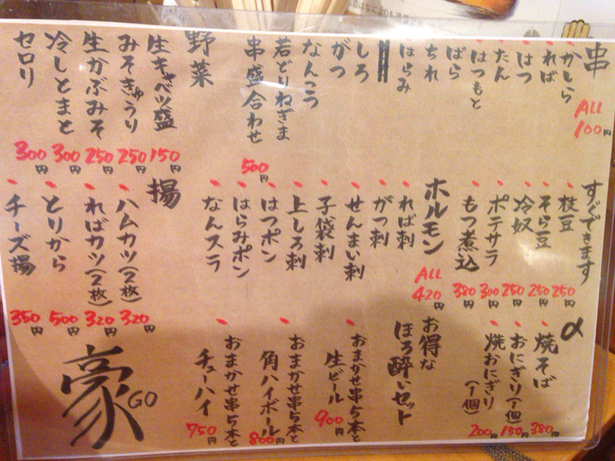 串
ALL 100円
かしら
ればー
はつ
たん
はつもと
ばら
ちれ
はらみ
しろ
がつ
なんこつ
若どりねぎま
串盛合わせ 500円
野菜
生キャベツ盛 150円
みそきゅうり 250円
生かぶみそ 250円
冷しとまと 300円
セロリ 300円
すぐできます
枝豆 250円
そら豆 250円
冷奴 250円
ポテサラ 300円
もつ煮込 380円
ホルモン
ALL 420円
れば刺
がつ刺
せんまい刺
子袋刺
上しろ刺
はつポン
はらみポン
なんスラ
揚
ハムカツ(2枚) 320円
ればカツ(2枚) 320円
とりから 500円
チーズ揚 350円
α
焼そば 380円
おにぎり(1個) 150円
焼おにぎり(1個) 200円
お得な
ほろ酔いセット
おまかせ串5本と
生ビール 900円
おまかせ串5本と
角ハイボール 800円
おまかせ串5本と
チューハイ 750円
豪
GO